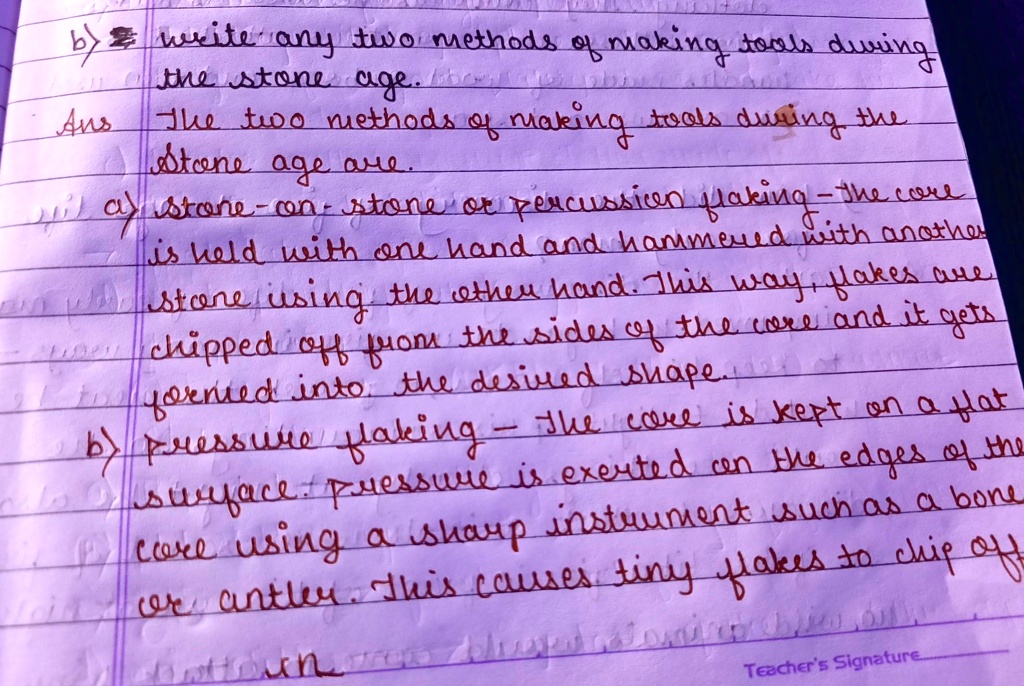 b) write any two methods of making tools during
the stone age.
Ans The two methods of making tools during the
Stone age are.
a) stone-on-stone or percussion flaking - The core
is held with one hand and hammered with another
stone using the other hand. This way, flakes are
chipped off from the sides of the core and it gets
formed into the desired shape.
b) Pressure flaking - The core is kept on a flat
surface. Pressure is exerted on the edges of the
core using a sharp instrument such as a bone
or antler. This causes tiny flakes to chip off
Teacher's Signature